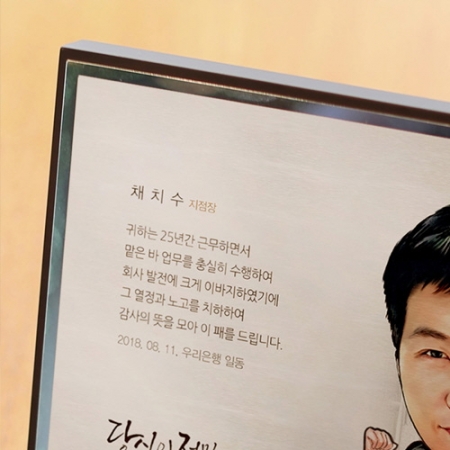 채치수 지점장
귀하는 25년간 근무하면서
맡은 바 업무를 충실히 수행하여
회사 발전에 크게 이바지하였기에
그 열정과 노고를 치하하여
감사의 뜻을 모아 이 패를 드립니다.
2018. 08. 11. 우리은행 일동
당신의